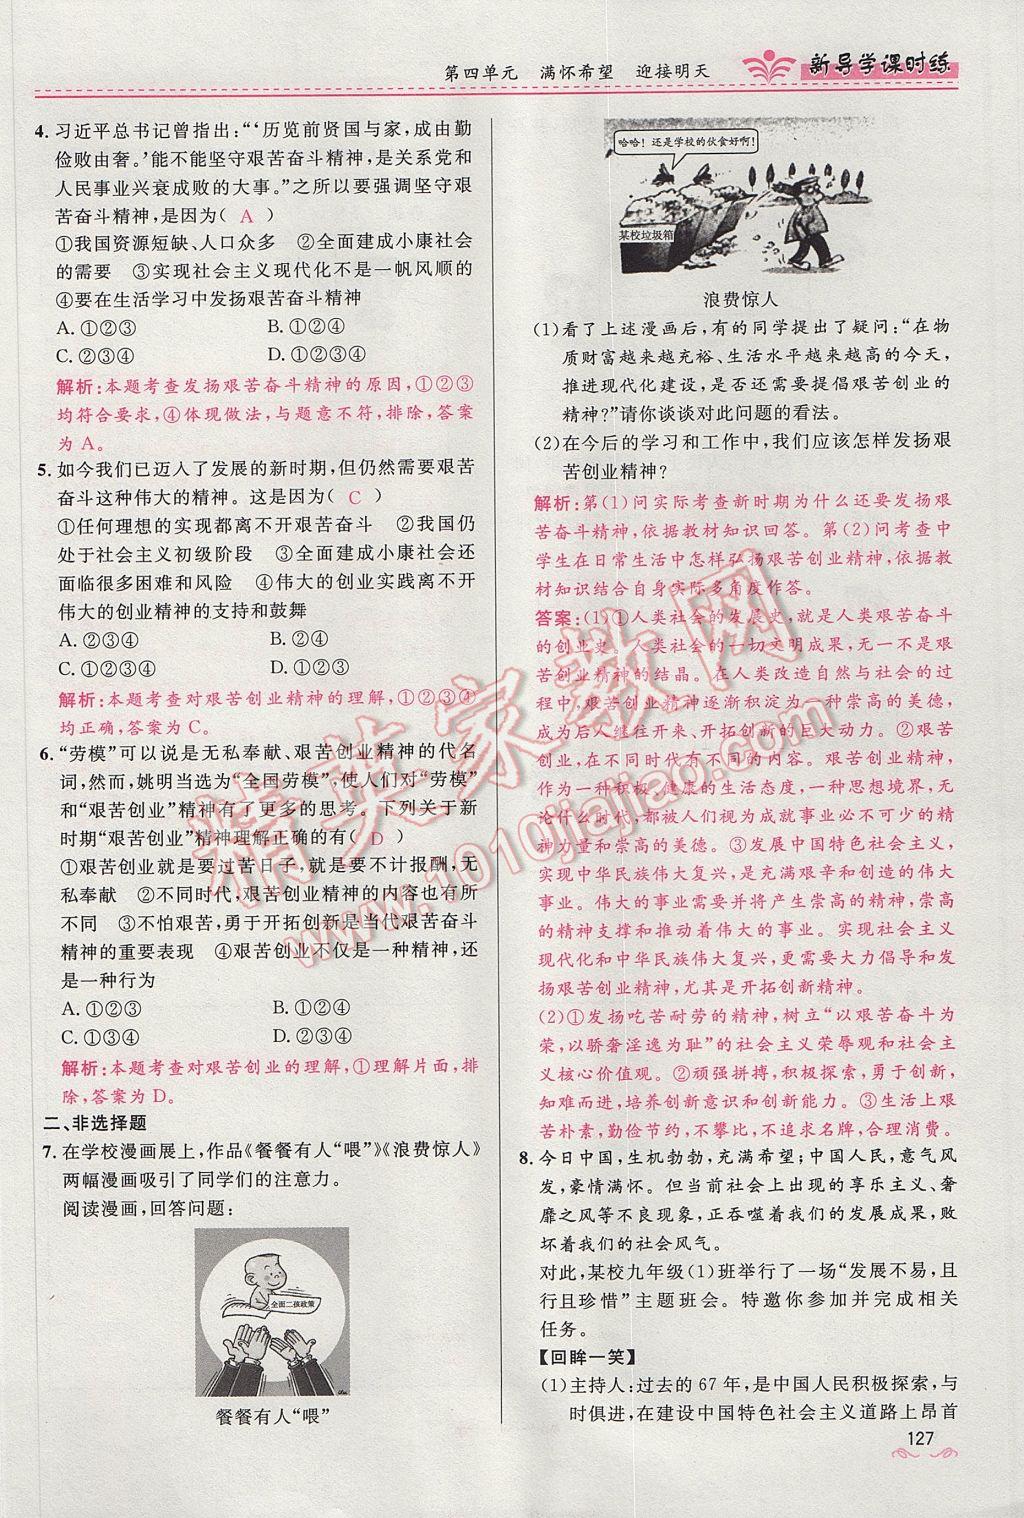 第四单元　满怀希望　迎接明天
新导学课时练
4. 习近平总书记曾指出:“‘历览前贤国与家,成由勤
俭败由奢。’能不能坚守艰苦奋斗精神,是关系党和
人民事业兴衰成败的大事。”之所以要强调坚守艰
苦奋斗精神,是因为( A )
①我国资源短缺、人口众多　②全面建成小康社会
的需要　③实现社会主义现代化不是一帆风顺的
④要在生活学习中发扬艰苦奋斗精神
A. ①②③　B. ①②④
C. ②③④　D. ①③④
解析:本题考查发扬艰苦奋斗精神的原因,①②③
均符合要求,④体现做法,与题意不符,排除,答案
为 A。
5. 如今我们已迈入了发展的新时期,但仍然需要艰苦
奋斗这种伟大的精神。这是因为( C )
①任何理想的实现都离不开艰苦奋斗　②我国仍
处于社会主义初级阶段　③全面建成小康社会还
面临很多困难和风险　④伟大的创业实践离不开
伟大的创业精神的支持和鼓舞
A. ②③④　B. ②④
C. ①②③④　D. ①②③
解析:本题考查对艰苦创业精神的理解,①②③④
均正确,答案为 C。
6. “劳模”可以说是无私奉献、艰苦创业精神的代名
词,然而,姚明当选为“全国劳模”,使人们对“劳模”
和“艰苦创业”精神有了更多的思考。下列关于新
时期“艰苦创业”精神理解正确的有( D )
①艰苦创业就是要过苦日子,就是要不计报酬,无
私奉献　②不同时代,艰苦创业精神的内容也有所
不同　③不怕艰苦,勇于开拓创新是当代艰苦奋斗
精神的重要表现　④艰苦创业不仅是一种精神,还
是一种行为
A. ①②③　B. ①②④
C. ①③④　D. ②③④
解析:本题考查对艰苦创业的理解,①理解片面,排
除,答案为 D。
二、非选择题
7. 在学校漫画展上,作品《餐餐有人“喂”》《浪费惊人》
两幅漫画吸引了同学们的注意力。
阅读漫画,回答问题:
全面二孩政策
餐餐有人“喂”
哈哈!还是学校的伙食好啊!
某校垃圾箱
浪费惊人
(1)看了上述漫画后,有的同学提出了疑问:“在物
质财富越来越充裕、生活水平越来越高的今天,
推进现代化建设,是否还需要提倡艰苦创业的
精神?”请你谈谈对此问题的看法。
(2)在今后的学习和工作中,我们应该怎样发扬艰
苦创业精神?
解析:第(1)问实际考查新时期为什么还要发扬艰
苦奋斗精神,依据教材知识回答。第(2)问考查中
学生在日常生活中怎样弘扬艰苦创业精神,依据教
材知识结合自身实际多角度作答。
答案:(1)①人类社会的发展史,就是人类艰苦奋斗
的创业史。人类社会的一切文明成果,无一不是艰
苦创业精神的结晶。在人类改造自然与社会的过
程中,艰苦创业精神逐渐积淀为一种崇高的美德,
成为后人继往开来、开拓创新的巨大动力。②艰苦
创业,在不同时代有不同的内容。艰苦创业精神,
作为一种积极、健康的生活态度,一种思想境界,无
论什么时代,都被人们视为成就事业必不可少的精
神力量和崇高的美德。③发展中国特色社会主义,
实现中华民族伟大复兴,是充满艰辛和创造的伟大
事业。伟大的事业需要并将产生崇高的精神,崇高
的精神支撑和推动着伟大的事业。实现社会主义
现代化和中华民族伟大复兴,更需要大力倡导和发
扬艰苦创业精神,尤其是开拓创新精神。
(2)①发扬吃苦耐劳的精神,树立“以艰苦奋斗为
荣,以骄奢淫逸为耻”的社会主义荣辱观和社会主
义核心价值观。②顽强拼搏,积极探索,勇于创新,
知难而进,培养创新意识和创新能力。③生活上艰
苦朴素,勤俭节约,不攀比,不追求名牌,合理消费。
8. 今日中国,生机勃勃,充满希望;中国人民,意气风
发,豪情满怀。但当前社会上出现的享乐主义、奢
靡之风等不良现象,正吞噬着我们的发展成果,败
坏着我们的社会风气。
对此,某校九年级(1)班举行了一场“发展不易,且
行且珍惜”主题班会。特邀你参加并完成相关
任务。
【回眸一笑】
(1)主持人:过去的 67 年,是中国人民积极探索,与
时俱进,在建设中国特色社会主义道路上昂首
127
精英家教网
www.1010jiajiao.com